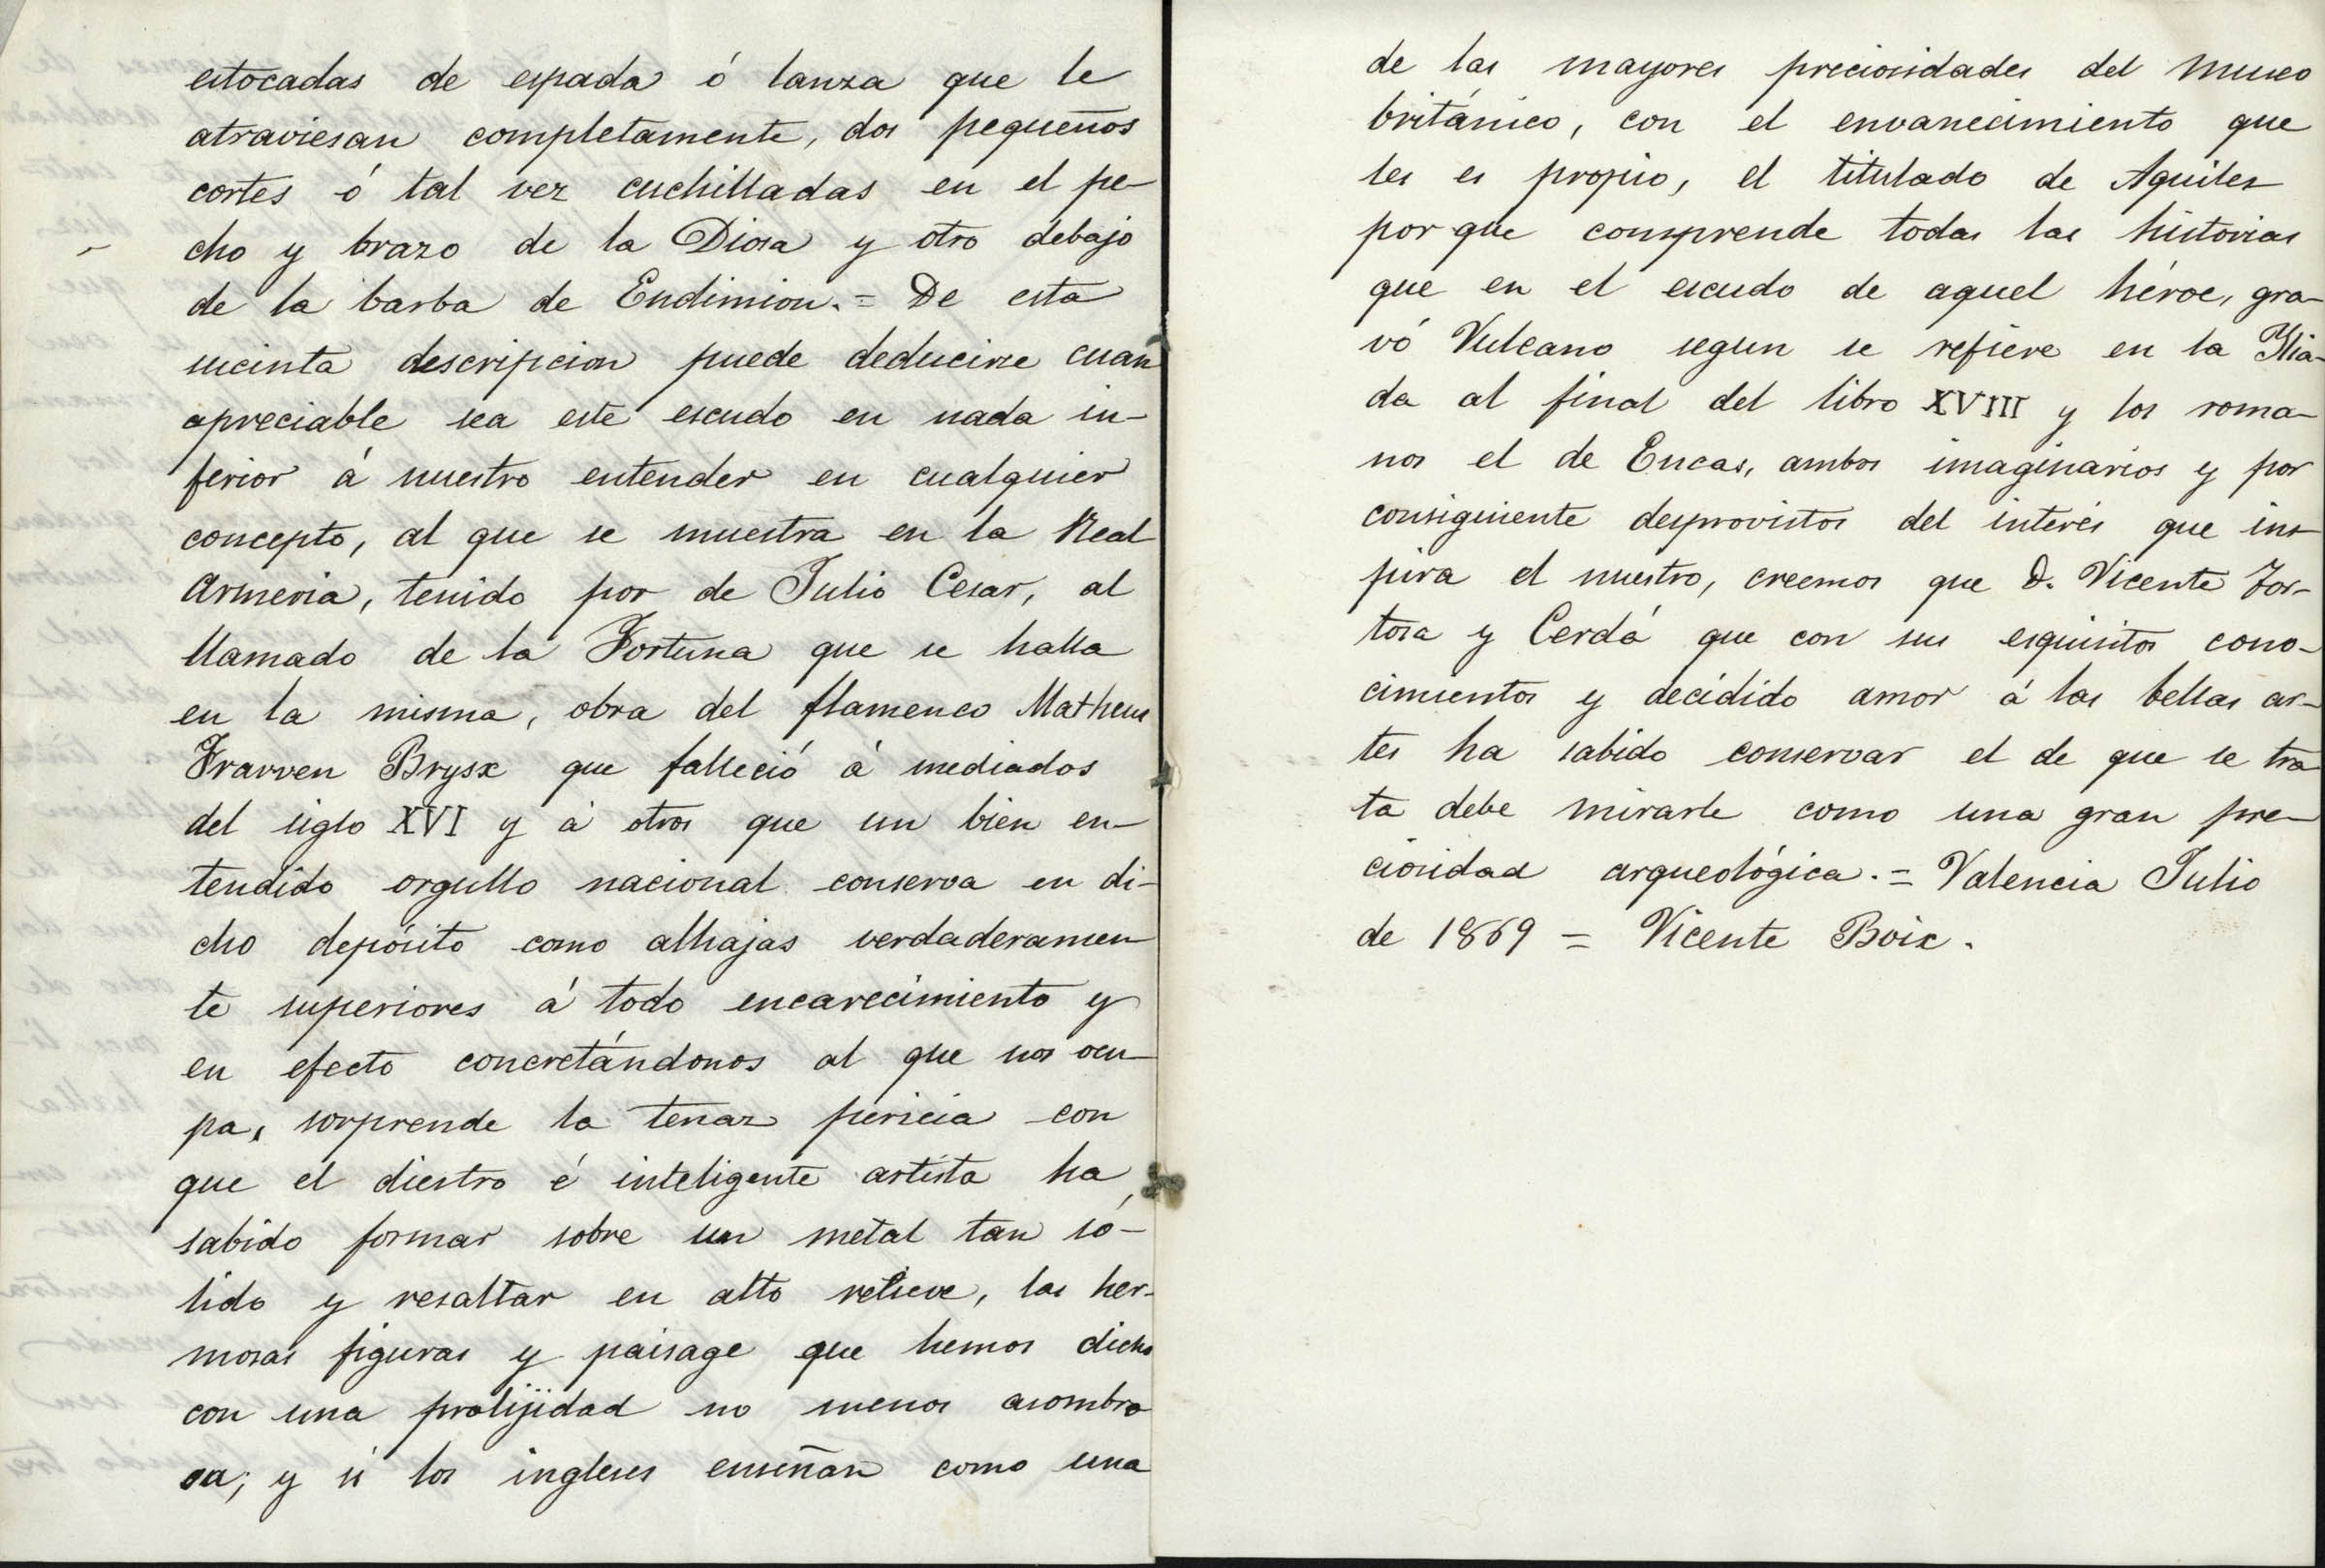 estocadas de espada ó lanza que le
atraviesan completamente, dos pequeños
cortes ó tal vez cuchilladas en el pe-
cho y brazo de la Diosa y otro debajo
de la barba de Endimion.= De esta
sucinta descripcion puede deducirse cuan
apreciable sea este escudo en nada in-
ferior á nuestro entender en cualquier
concepto, al que se muestra en la Real
Armeria, tenido por de Julio Cesar, al
llamado de la Fortuna que se halla
en la misma, obra del flamenco Matheus
Frarven Brysx que falleció á mediados
del siglo XVI y á otros que un bien en-
tendido orgullo nacional conserva en di-
cho depósito como alhajas verdaderamen
te superiores á todo encarecimiento y
en efecto concretándonos al que nos ocu-
pa, sorprende la tenaz pericia con
que el diestro é inteligente artista ha
sabido formar sobre un metal tan só-
lido y resaltar en alto relieve, las her-
mosas figuras y paisage que hemos dicho
con una prolijidad no menos asombro
sa; y si los ingleses enseñan como una
de las mayores preciosidades del Museo
británico, con el envanecimiento que
les es propio, el titulado de Aquiles
porque comprende todas las historias
que en el escudo de aquel héroe, gra-
vó Vulcano segun se refiere en la Ilia-
da al final del libro XVIII y los roma-
nos el de Eneas, ambos imaginarios y por
consiguiente desprovistos del interés que ins-
pira el nuestro, creemos que D. Vicente Tor-
tosa y Cerdá que con sus esquisitos cono-
cimientos y decidido amor á las bellas ar-
tes ha sabido conservar el de que se tra
ta debe mirarle como una gran pre-
ciosidad arqueológica.= Valencia Julio
de 1869 = Vicente Boix.